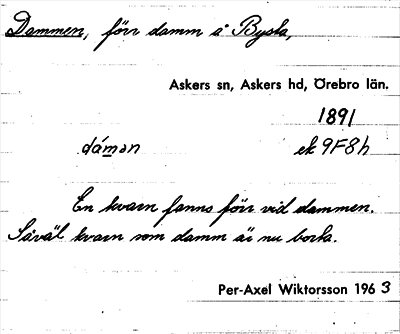 Dammen, förr damm å Bysta,
Askers sn, Askers hd, Örebro län.
1891
dámən ek 9F8h
En kvarn fanns förr vid dammen.
Såväl kvarn som damm är nu borta.
Per-Axel Wiktorsson 1963